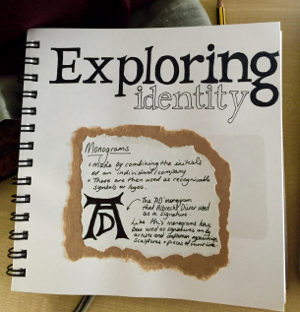 Exploring
identity
Monograms
• Made by combining the initials
of an individual/company
• These are then used as recognisable
symbols or logos.
AD
The 'AD' monogram
that Albrecht Dürer used
as a signature.
Like this monograms have
been used as signatures on by
artists and craftsmen
sculptures + pieces of furniture